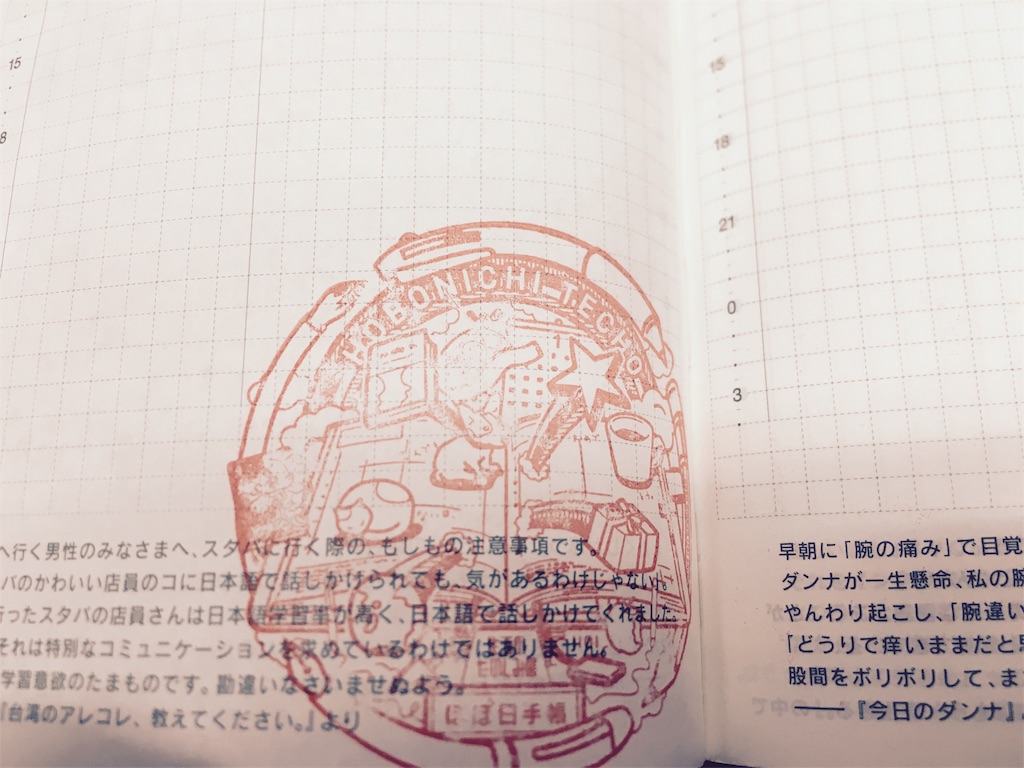 15
18
HOBONICHI TECHO
へ行く男性のみなさまへ、スタバに行く際の、もしもの注意事項です。
バのかわいい店員のコに日本語で話しかけられても、気があるわけじゃない。
行ったスタバの店員さんは日本語学習率が高く、日本語で話しかけてくれました。
それは特別なコミュニケーションを求めているわけではありません。
学習意欲のたまものです。勘違いなさいませぬよう。
『台湾のアレコレ、教えてください。』より
ほぼ日手帳
15
18
21
0
3
早朝に「腕の痛み」で目覚
ダンナが一生懸命、私の腕
やんわり起こし、「腕違い
「どうりで痒いままだと思
股間をボリボリして、ま
——『今日のダンナ』